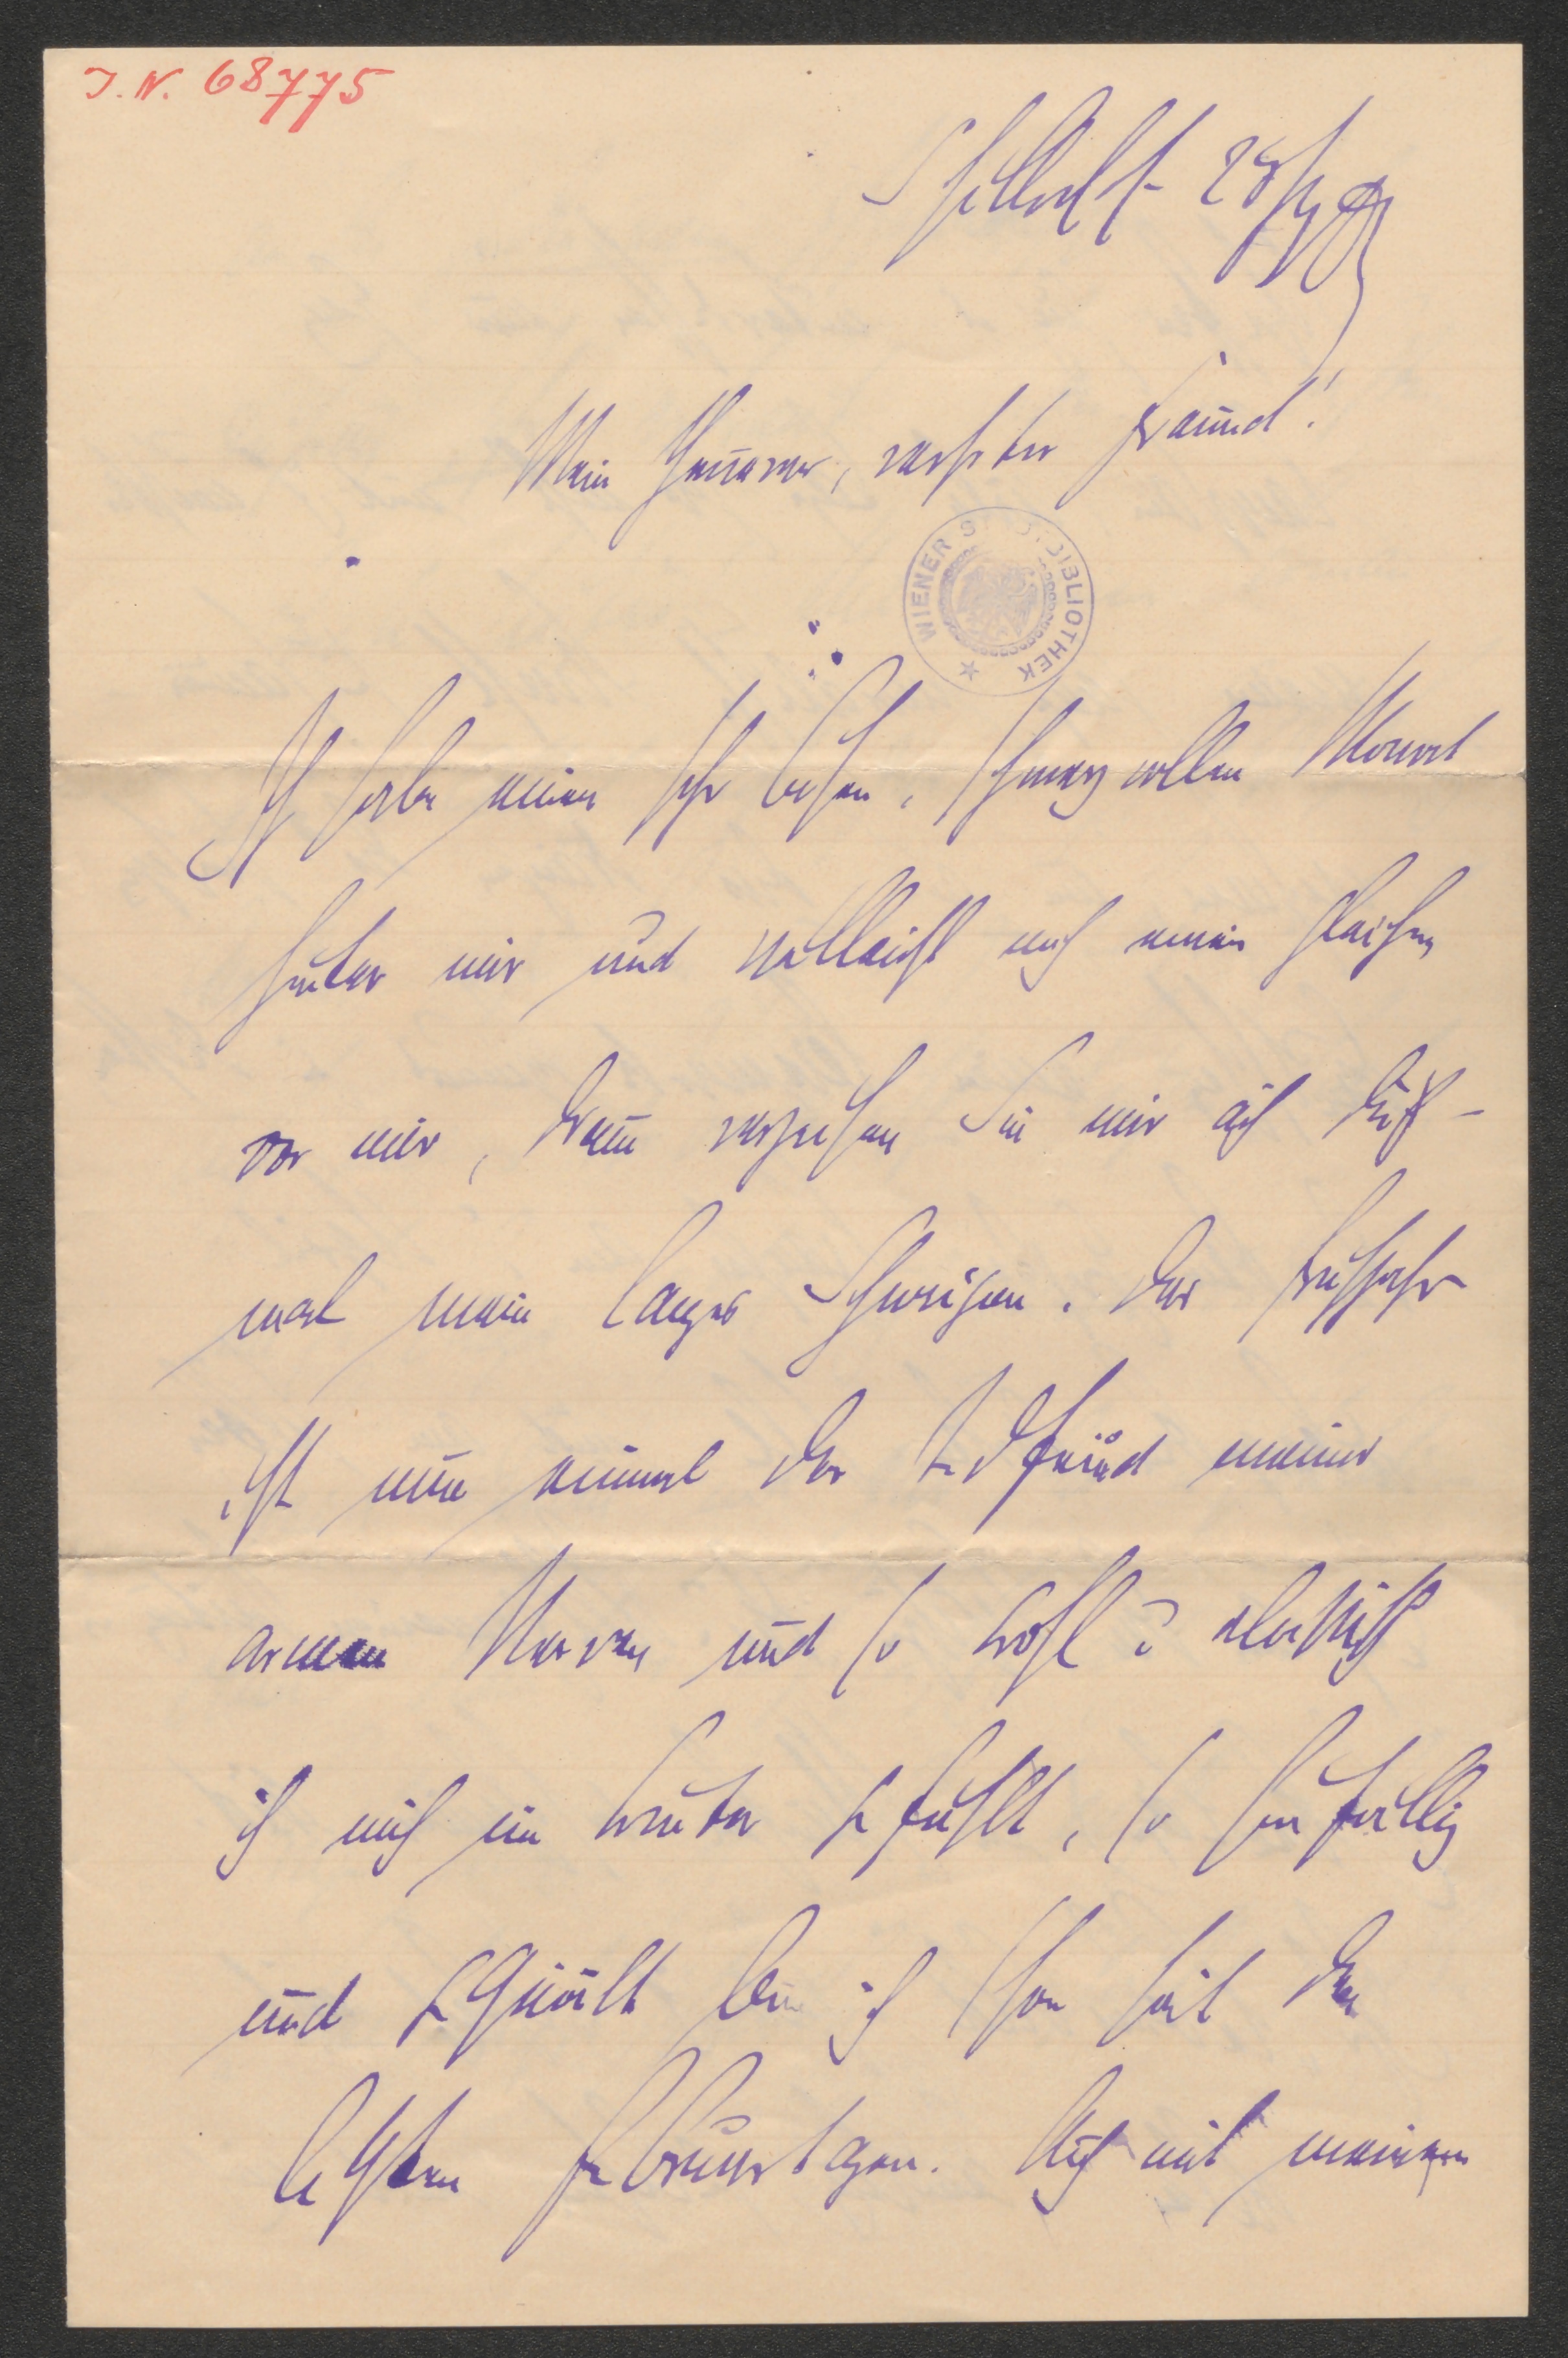 I. N. 68775
Mein theuerer, verehrter Freund!
WIENER STADTBIBLIOTHEK
Ich habe einen sehr bösen, schmerzvollen Monat
hinter mir und vielleicht noch einen gleichen
vor mir, drum verzeihen Sie mir auch dieß-
mal mein langes Schweigen. Das Frühjahr
ist nun einmal der Todfeind meiner
armen Nerven und so wohl
ich mich im Winter gefühlt, so hinfällig
und gequält bin ich schon seit den
letzten Februartagen. Auch mit meinem